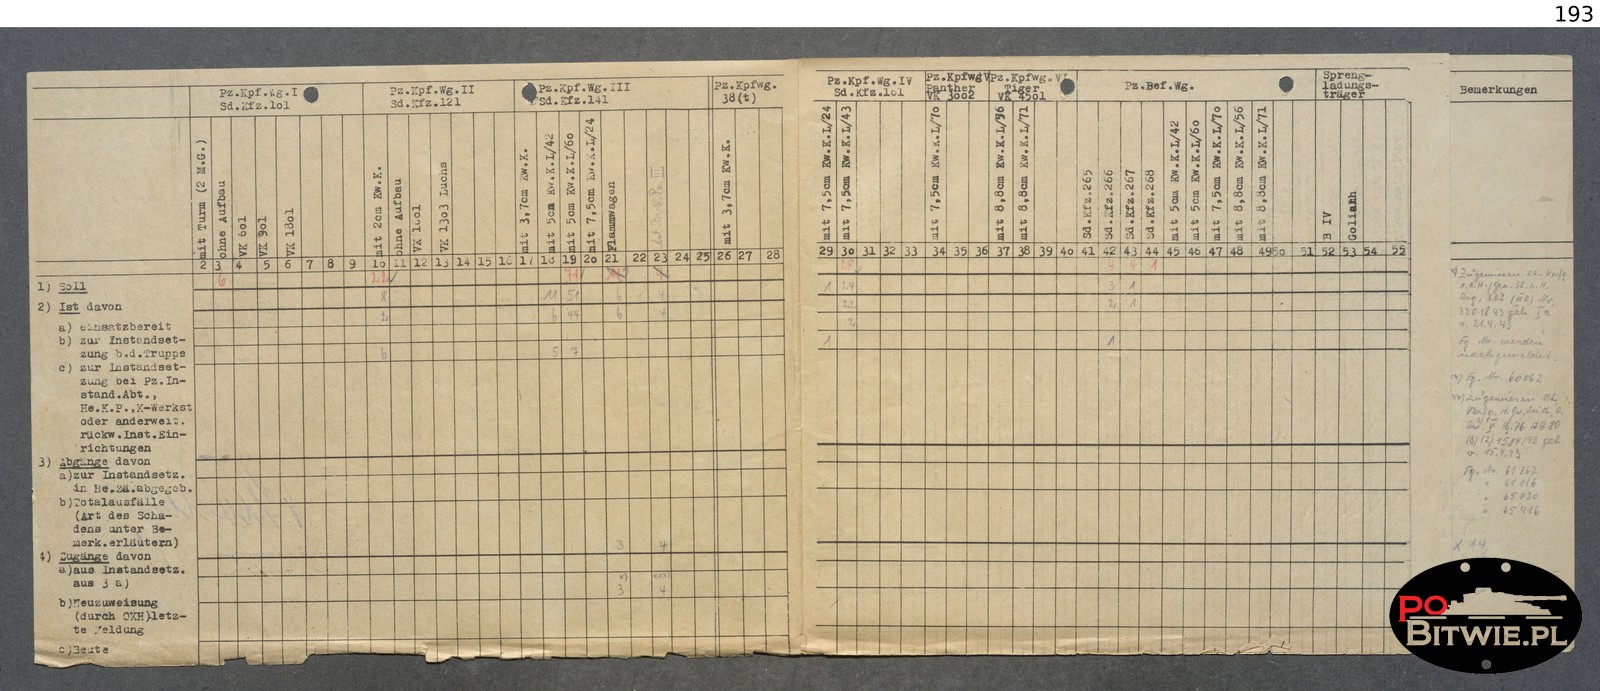 193
Pz.Kpf.Wg.I
Sd.Kfz.101
Pz.Kpf.Wg.II
Sd.Kfz.121
Pz.Kpf.Wg.III
Sd.Kfz.141
Pz.Kpfwg.
38(t)
Pz.Kpf.Wg.IV
Sd.Kfz.161
Pz.KpfwgV
Panther
VK 3002
Pz.Kpfwg.VI
Tiger
VK 4501
Pz.Bef.Wg.
Spreng-
ladungs-
träger
Bemerkungen
mit Turm (2 M.G.)
ohne Aufbau
VK 601
VK 901
VK 1801
mit 2cm Kw.K.
ohne Aufbau
VK 1601
VK 1303 Luchs
mit 3,7cm Kw.K.
mit 5cm Kw.K.L/42
mit 5cm Kw.K.L/60
mit 7,5cm Kw.K.L/24
Flammwagen
mit 3,7cm Kw.K.
mit 7,5cm Kw.K.L/24
mit 7,5cm Kw.K.L/43
mit 7,5cm Kw.K.L/70
mit 8,8cm Kw.K.L/56
mit 8,8cm Kw.K.L/71
Sd.Kfz.265
Sd.Kfz.266
Sd.Kfz.267
Sd.Kfz.268
mit 5cm Kw.K.L/42
mit 5cm Kw.K.L/60
mit 7,5cm Kw.K.L/70
mit 8,8cm Kw.K.L/56
mit 8,8cm Kw.K.L/71
B IV
Goliath
2 3 4 5 6 7 8 9 10 11 12 13 14 15 16 17 18 19 20 21 22 23 24 25 26 27 28
29 30 31 32 33 34 35 36 37 38 39 40 41 42 43 44 45 46 47 48 49 50 51 52 53 54 55
1) Soll 6 71 4 4 1
2) Ist davon 8 11 51 6 4 1 24 3 1
a) einsatzbereit 2 6 44 6 4 22 2 1
b) zur Instandset-
zung b.d.Truppe 6 5 7 1 1
c) zur Instandset-
zung bei Pz.In-
stand.Abt.,
He.K.P.,K-Werkst
oder anderweit.
rückw.Inst.Ein-
richtungen
3) Abgänge davon
a)zur Instandsetz.
in He.Za.abgegeb.
b)Totalausfälle
(Art des Scha-
dens unter Be-
merk.erläutern)
4) Zugänge davon 3 4
a)aus Instandsetz.
aus 3 a)
b)Neuzuweisung 3 4
(durch OKH)letz-
te Meldung
c)Beute
Fg. Nr. werden
nachgemeldet.
Fg. Nr. 60062
v. 15.4.43
Fg. Nr. 61362
" 61116
" 65030
" 65416
PO
BITWIE.PL